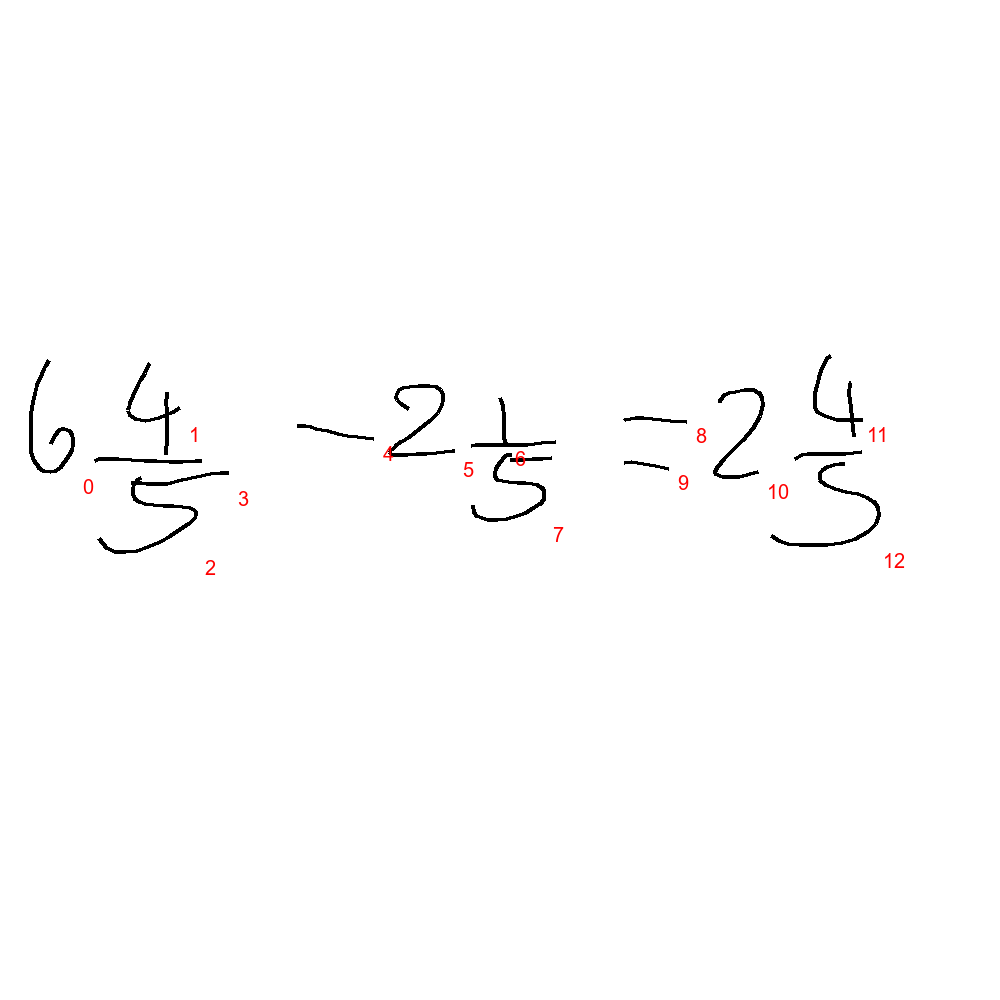 6 4/5 - 2 1/5 = 2 4/5
0 1 2 3 4 5 6 7 8 9 10 11 12